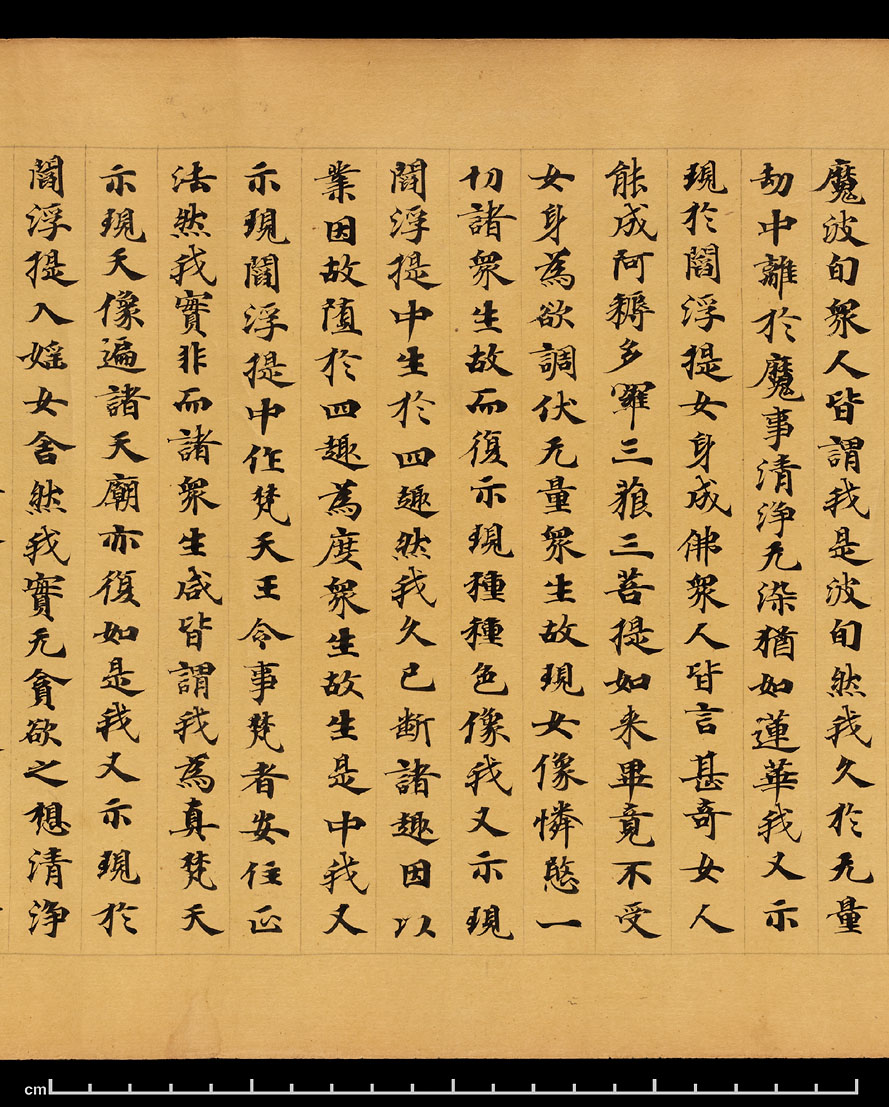 魔波旬衆人皆謂我是波旬然我久於无量
劫中離於魔事清浄无染猶如蓮華我又示
現於閻浮提女身成佛衆人皆言甚奇女人
能成阿耨多羅三藐三菩提如来畢竟不受
女身為欲調伏无量衆生故現女像憐愍一
切諸衆生故而復示現種種色像我又示現
閻浮提中生於四趣然我久已断諸趣因以
業因故堕於四趣為度衆生故生是中我又
示現閻浮提中作梵天王令事梵者安住正
法然我實非而諸衆生咸皆謂我為真梵天
示現天像遍諸天廟亦復如是我又示現於
閻浮提入婬女舍然我實无貪欲之想清浄
cm